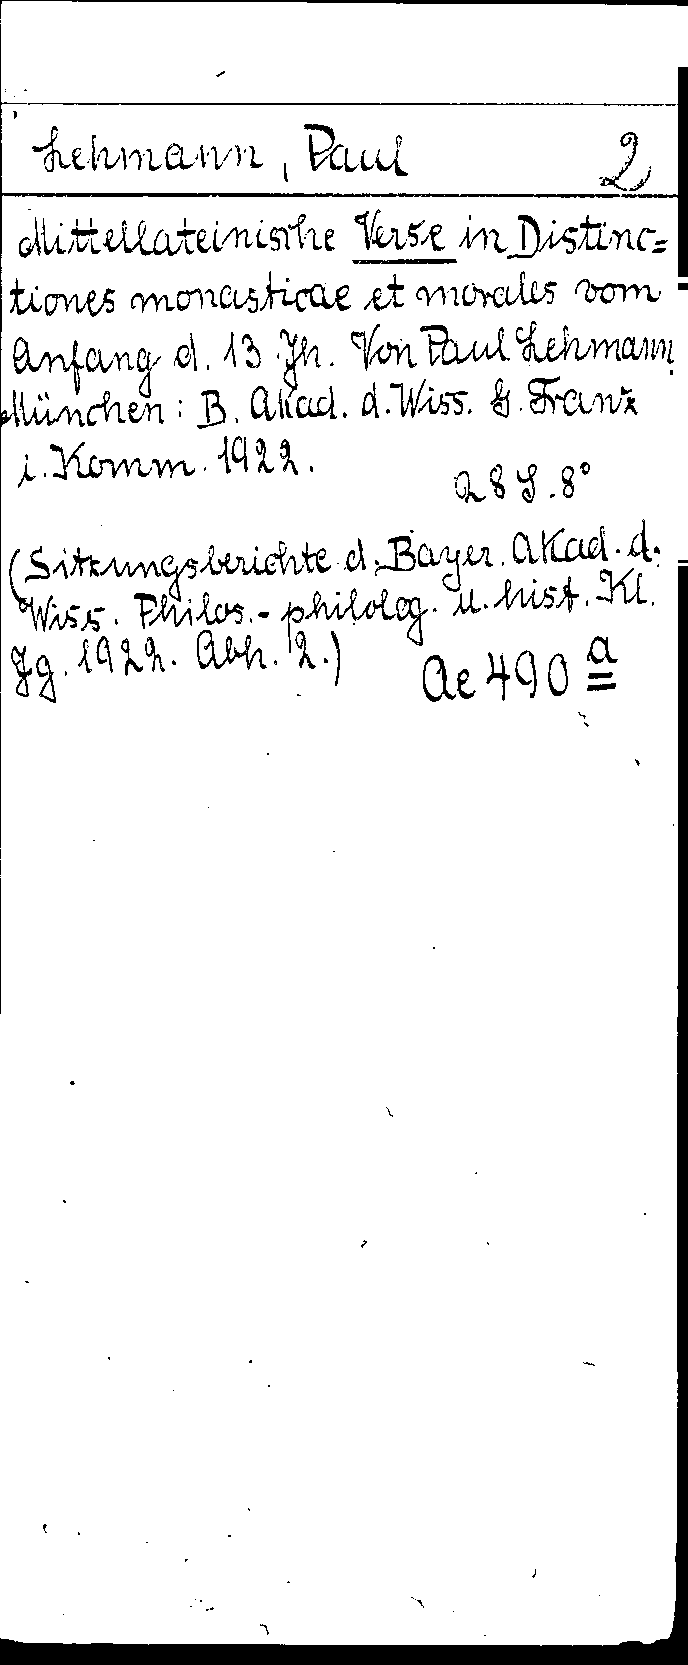 Lehmann, Paul 2
Mittellateinische Verse in Distinc=
tiones monasticae et morales vom
Anfang d. 13. Jh. Von Paul Lehmann
München: B. Akad. d. Wiss. G. Franz
i. Komm. 1922.
28 S. 8°
(Sitzungsberichte d. Bayer. Akad. d.
Wiss. Philos.-philolog. u. hist. Kl.
Jg. 1922. Abh. 2.)
Ae 490 a